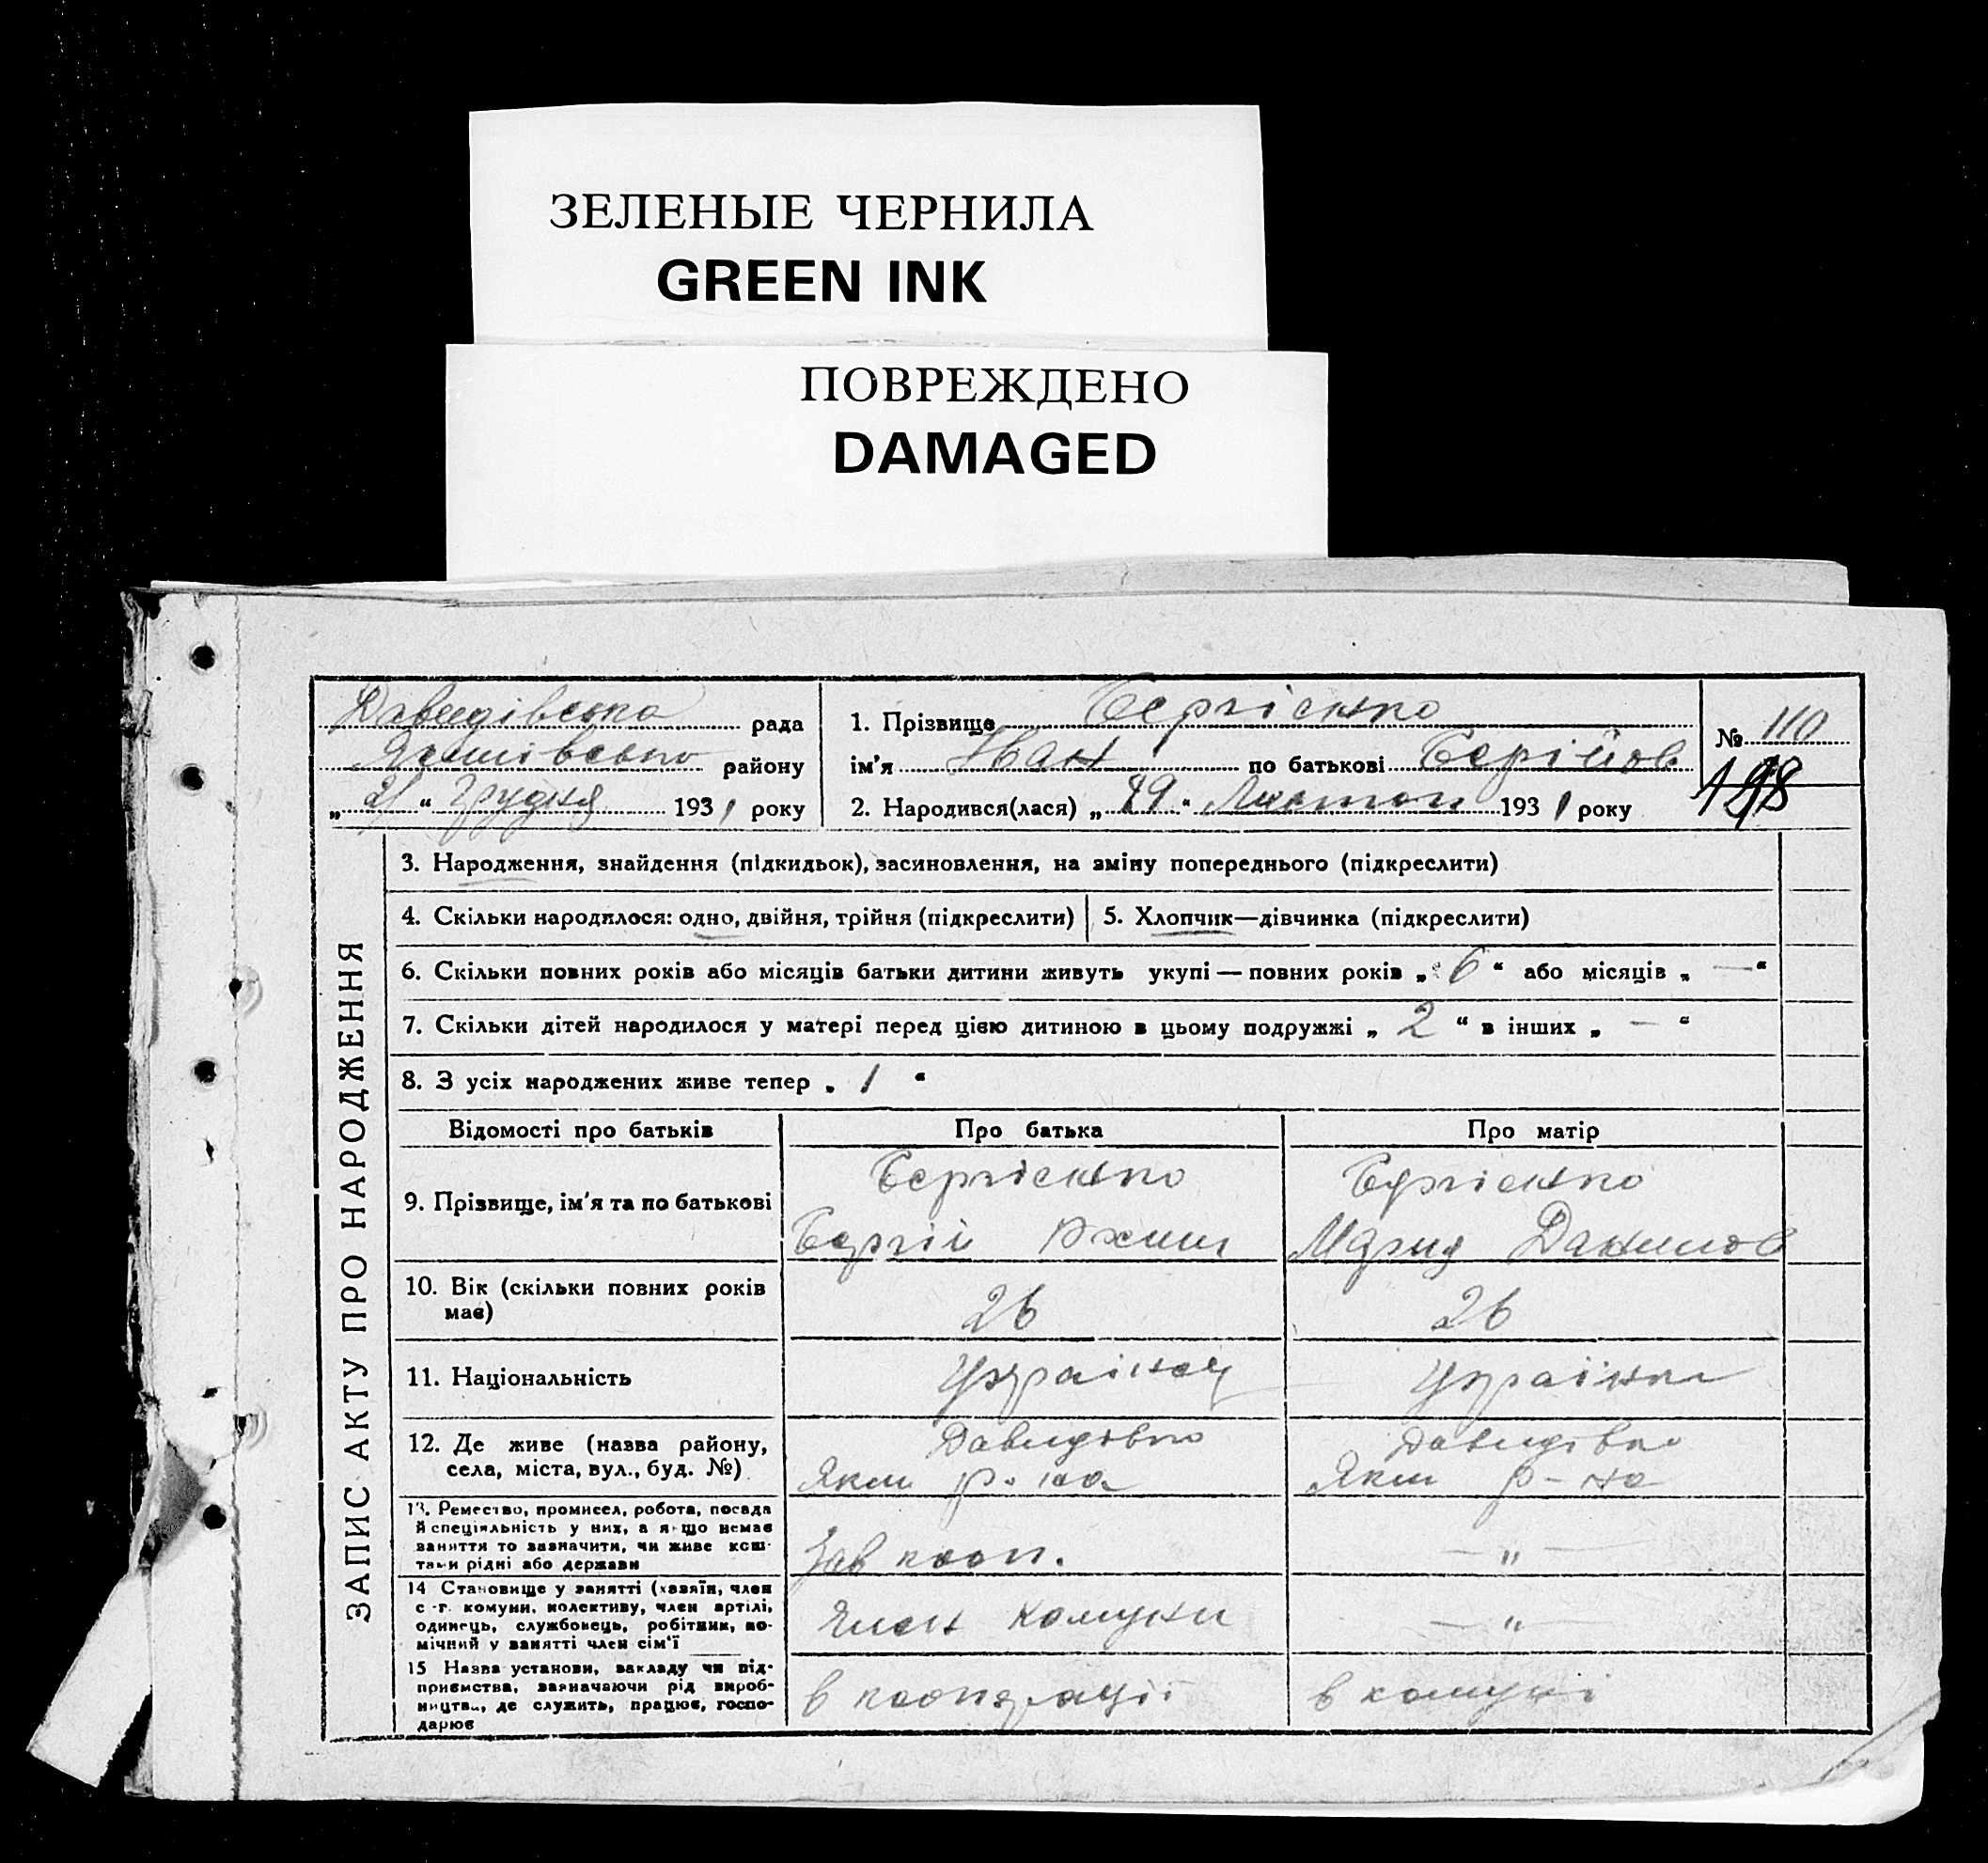 ЗЕЛЕНЫЕ ЧЕРНИЛА
GREEN INK
ПОВРЕЖДЕНО
DAMAGED
Давидівська рада
району
„ 21 “ Грудня 1931 року
1. Прізвище Сергієнко
ім'я Іван по батькові Сергійов
2. Народився(лася) „ 29 “ Листоп 1931 року
№ 110
198
ЗАПИС АКТУ ПРО НАРОДЖЕННЯ
3. Народження, знайдення (підкидьок), засиновлення, на зміну попереднього (підкреслити)
4. Скільки народилося: одно, двійня, трійня (підкреслити)
5. Хлопчик—дівчинка (підкреслити)
6. Скільки повних років або місяців батьки дитини живуть укупі — повних років „ 6 “ або місяців „ — “
7. Скільки дітей народилося у матері перед цією дитиною в цьому подружжі „ 2 “ в інших „ — “
8. З усіх народжених живе тепер „ 1 “
Відомості про батьків
Про батька
Про матір
9. Прізвище, ім'я та по батькові
Сергієнко
Сергій
Сергієнко
Мария Данилов
10. Вік (скільки повних років
має)
26
26
11. Національність
Українец
Українка
12. Де живе (назва району,
села, міста, вул., буд. №)
Давидівка
Яким р-на
Давидівка
Яким р-на
13. Ремество, промисел, робота, посада
й спеціяльність у них, а якщо немає
заняття то зазначити, чи живе кош-
тами рідні або держави
Зав кооп.
— „ —
14 Становище у занятті (хазяїн, член
с.-г. комуни, колективу, член артілі,
одинець, службовець, робітник, по-
мічний у занятті член сім'ї
Член Комуни
— „
15 Назва установи, закладу чи під-
приємства, зазначаючи рід вироб-
ництва, де служить, працює, госпо-
дарює
в кооперації
в комуні